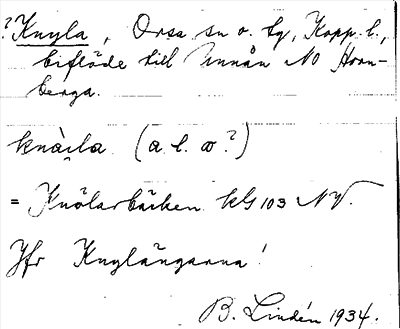 ? Knyla, Orsa sn o. tg, Kopp. l.,
biflöde till Unnån NO Horn-
berga.
knàila (a l. ɷ?)
= Knölarbäcken kls 103 NV.
Jfr Knylängarna!
B. Lindén 1934.